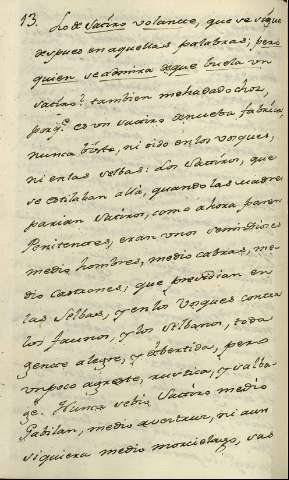 13. Lo de Satiro volante, que se sigue
despues en aquellas palabras; pero
quien se admira de que buela un
satiro? tambien me ha dado choz,
porq.e es un satiro de nueba fabrica,
nunca visto, ni oido en los vosques,
ni en las selbas: Los Satiros, que
se estilaban allá, quando las madres
parian Satiros, como ahora paren
Penitentes, eran unos semidioses
medio hombres, medio cabras, me-
dio castrones; que presidian en
las Selbas, y en los Vosques con ca
los faunos, y los silbanos, toda
gente alegre, y dibertida, pero
un poco agreste, rustica, y salba-
ge. Nunca se bio Satiro medio
Gabilan, medio avestruz, ni aun
siquiera medio morcielago, sas